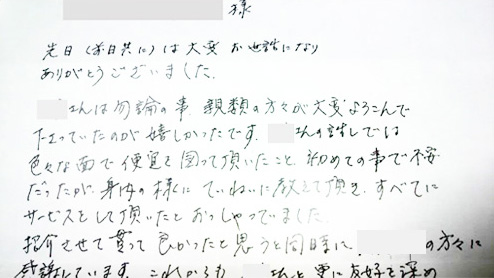 様
先日(前日共に)は大変お世話になり
ありがとうございました。
さんは勿論の事、親類の方々が大変よろこんで
下さっていたのが嬉しかったです。さんの話しでは
色々な面で便宜を図って頂いたこと、初めての事で不安
だったが、身内の様にていねいに教えて頂き、すべてに
サービスをして頂いたとおっしゃっていました。
紹介させて貰って良かったと思うと同時に、の方々に
感謝しています。これからも、さんと更に友好を深め